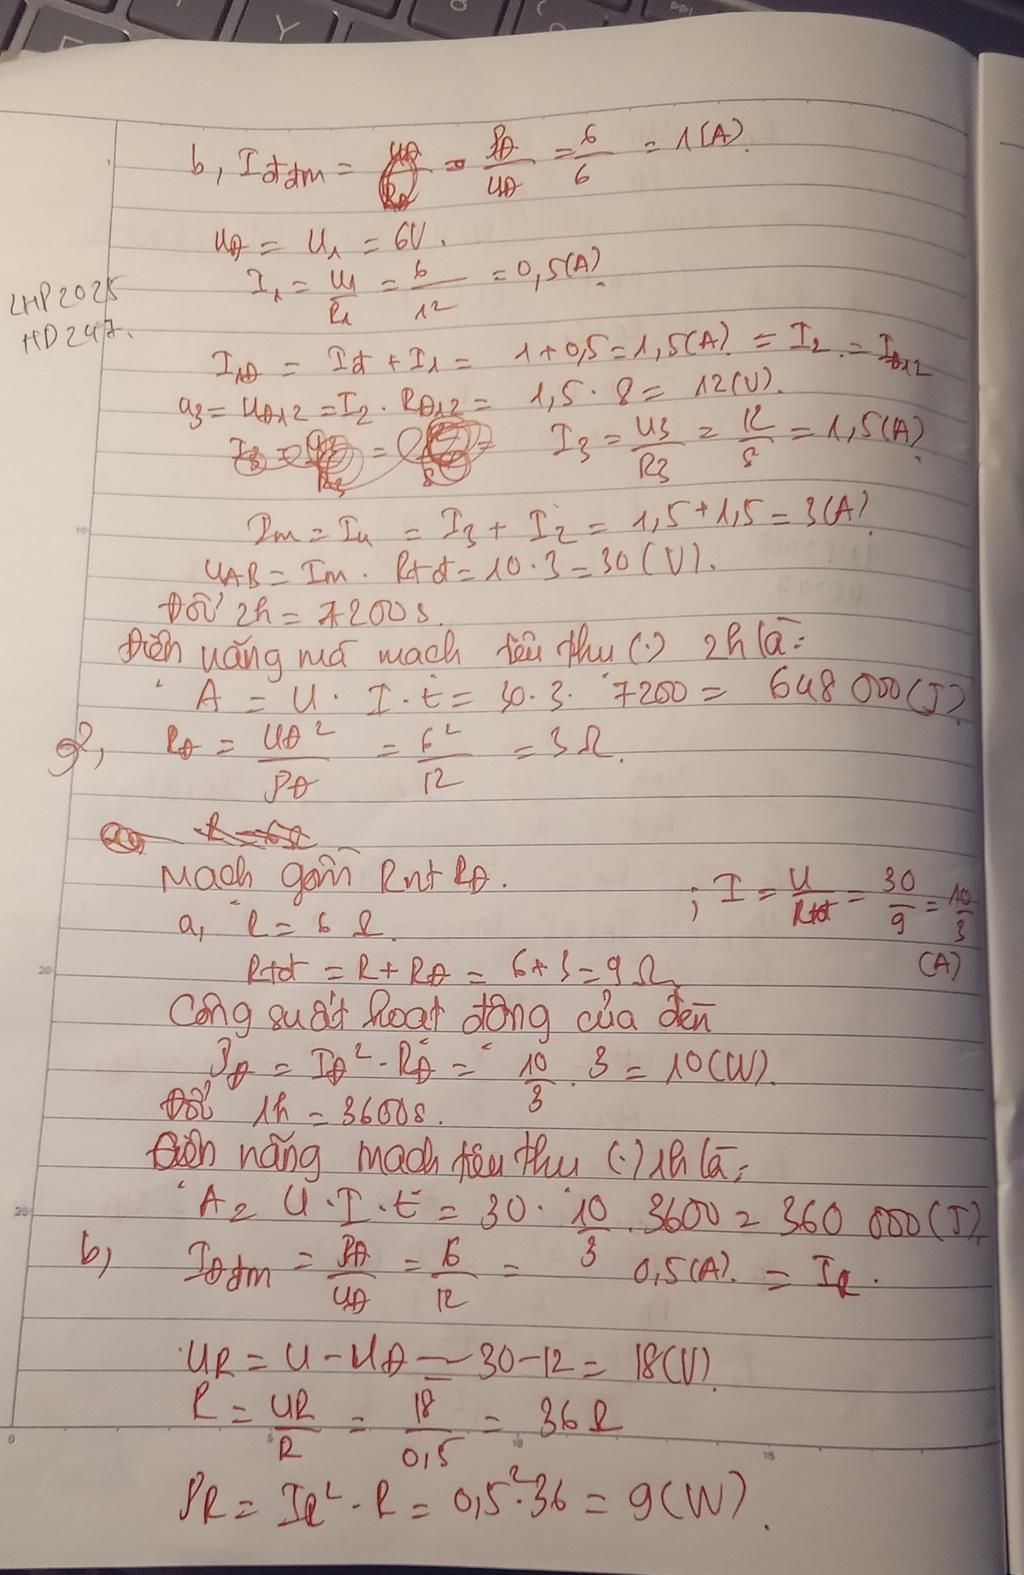 b, Iđđm = PĐ/UĐ = 6/6 = 1(A).
UĐ = U1 = 6V.
I1 = U1/R1 = 6/12 = 0,5(A)
LHP2025
HD247.
I1Đ = Iđ + I1 = 1+0,5 = 1,5(A) = I2 = IĐ12
U3 = UĐ12 = I2 . RĐ12 = 1,5 . 8 = 12(V).
I3 = U3/R3 = 12/8 = 1,5(A)
Im = I4 = I3 + I2 = 1,5 + 1,5 = 3(A)
UAB = Im . Rtđ = 10 . 3 = 30(V).
Đổi 2h = 7200s.
Điện năng mà mạch tiêu thụ (.) 2h là:
A = U . I . t = 30 . 3 . 7200 = 648 000(J)
2, RĐ = UĐ²/PĐ = 6²/12 = 3Ω.
Mạch gồm R nt RĐ.
; I = U/Rtđ = 30/9 = 10/3 (A)
a, R = 6 Ω.
Rtđ = R + RĐ = 6+3 = 9Ω
Công suất hoạt động của đèn
PĐ = IĐ² . RĐ = 10/3 . 3 = 10(W).
Đổi 1h = 3600s.
Điện năng mạch tiêu thụ (.) 1h là:
A = U . I . t = 30 . 10/3 . 3600 = 360 000(J)
b, IĐđm = PĐ/UĐ = 6/12 = 0,5(A) = IR.
UR = U - UĐ = 30-12 = 18(V)
R = UR/R = 18/0,5 = 36Ω
PR = IR² . R = 0,5² . 36 = 9(W).